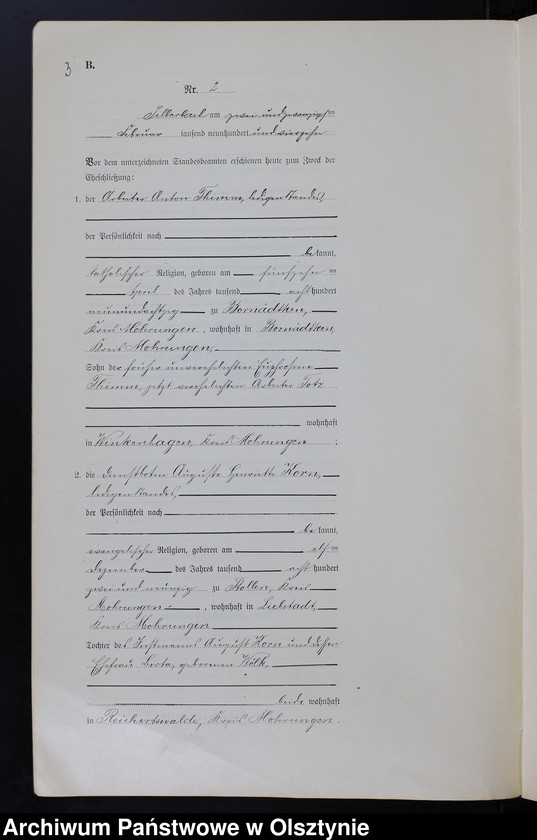 3 B.
Nr. 2
am zwei und zwanzigsten
Februar tausend neunhundert und vierzehn
Vor dem unterzeichneten Standesbeamten erschienen heute zum Zweck der
Eheschließung:
1. der Arbeiter Anton Thimm, ledigen Standes,
der Persönlichkeit nach
bekannt,
katholischer Religion, geboren am fünfzehnten
April des Jahres tausend acht hundert
neunundachtzig zu
Kreis Mohrungen, wohnhaft in
Kreis Mohrungen,
Sohn der früher unverehelichten Euphrosine
Thimm, jetzt verehelichten Arbeiter
wohnhaft
in Winkenhagen, Kreis Mohrungen ;
2. die Dienstboten Auguste Henriette Korn,
ledigen Standes,
der Persönlichkeit nach
bekannt,
evangelischer Religion, geboren am elften
Dezember des Jahres tausend acht hundert
zwei und neunzig zu Stollen, Kreis
Mohrungen, wohnhaft in Liebstadt,
Kreis Mohrungen
Tochter des Instmanns August Korn und dessen
Ehefrau Berta, geborenen Wölk,
beide wohnhaft
in Reichertswalde, Kreis Mohrungen.
Archiwum Państwowe w Olsztynie